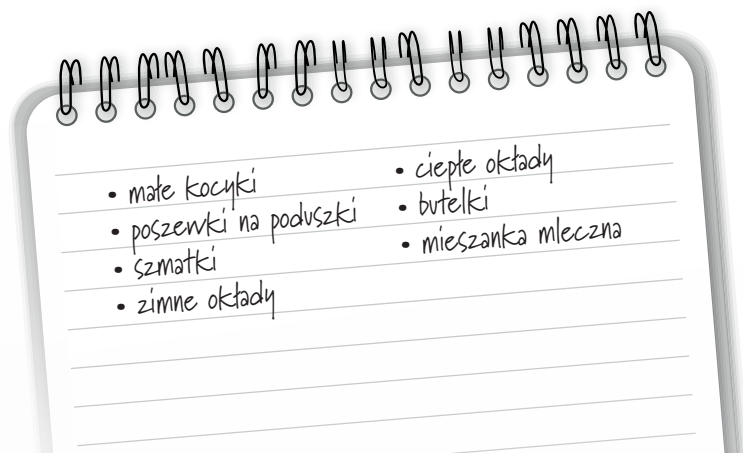 • małe kocyki
• poszewki na poduszki
• szmatki
• zimne okłady
• ciepłe okłady
• butelki
• mieszanka mleczna